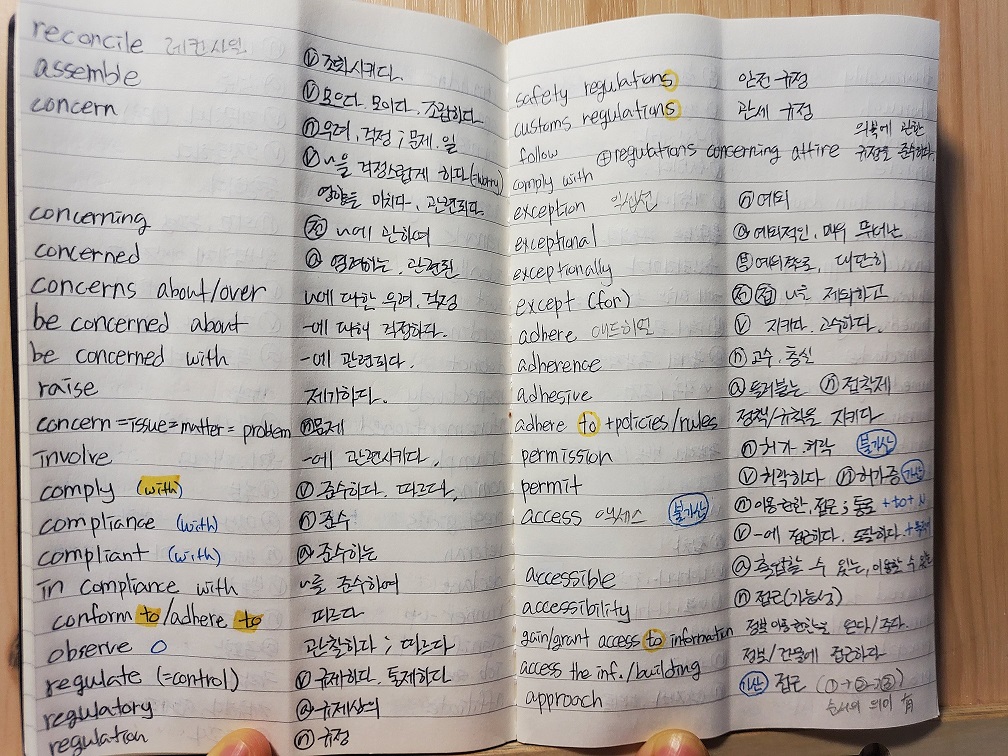 reconcile 레컨사일 ⓥ 조화시키다.
assemble ⓥ 모으다. 모이다. 조립하다.
concern ⓝ 우려, 걱정 ; 문제. 일
ⓥ ~을 걱정스럽게 하다(=worry)
영향을 미치다, 관련되다.
concerning 전 ~에 관하여
concerned ⓐ 염려하는, 관련된
concerns about/over ~에 대한 우려, 걱정
be concerned about -에 대해 걱정하다.
be concerned with -에 관련되다.
raise 제기하다.
concern =issue=matter= problem ⓝ문제
involve -에 관련시키다.
comply (with) ⓥ 준수하다. 따르다.
compliance (with) ⓝ 준수
compliant (with) ⓐ 준수하는
in compliance with ~를 준수하여
conform to/adhere to 따르다
observe O 관찰하다 ; 따르다
regulate (=control) ⓥ 규제하다. 통제하다
regulatory ⓐ 규제상의
regulation ⓝ 규정
safety regulations 안전 규정
customs regulations 관세 규정
follow ⊕regulations concerning attire 의복에 관한 규정을 준수하다.
comply with
exception 익셉션 ⓝ 예외
exceptional ⓐ 예외적인, 매우 뛰어난
exceptionally 부 예외적으로, 대단히
except (for) 전 접 ~를 제외하고
adhere 애드히얼 ⓥ 지키다. 고수하다.
adherence ⓝ 고수. 충실
adhesive ⓐ 들러붙는 ⓝ 접착제
adhere to +policies/rules 정책/규칙을 지키다
permission ⓝ 허가. 허락 불가산
permit ⓥ 허락하다 ⓝ허가증 가산
access 액세스 불가산 ⓝ 이용 권한, 접근 ; 통로 +to+ N
ⓥ -에 접근하다. 도달하다.
accessible ⓐ 출입할 수 있는, 이용할 수 있는
accessibility ⓝ 접근(가능성)
gain/grant access to information 정보 이용 권한을 얻다/주다.
access the inf./building 정보/건물에 접근하다
approach 가산 접근 (①→②→③)
순서의 의미 有